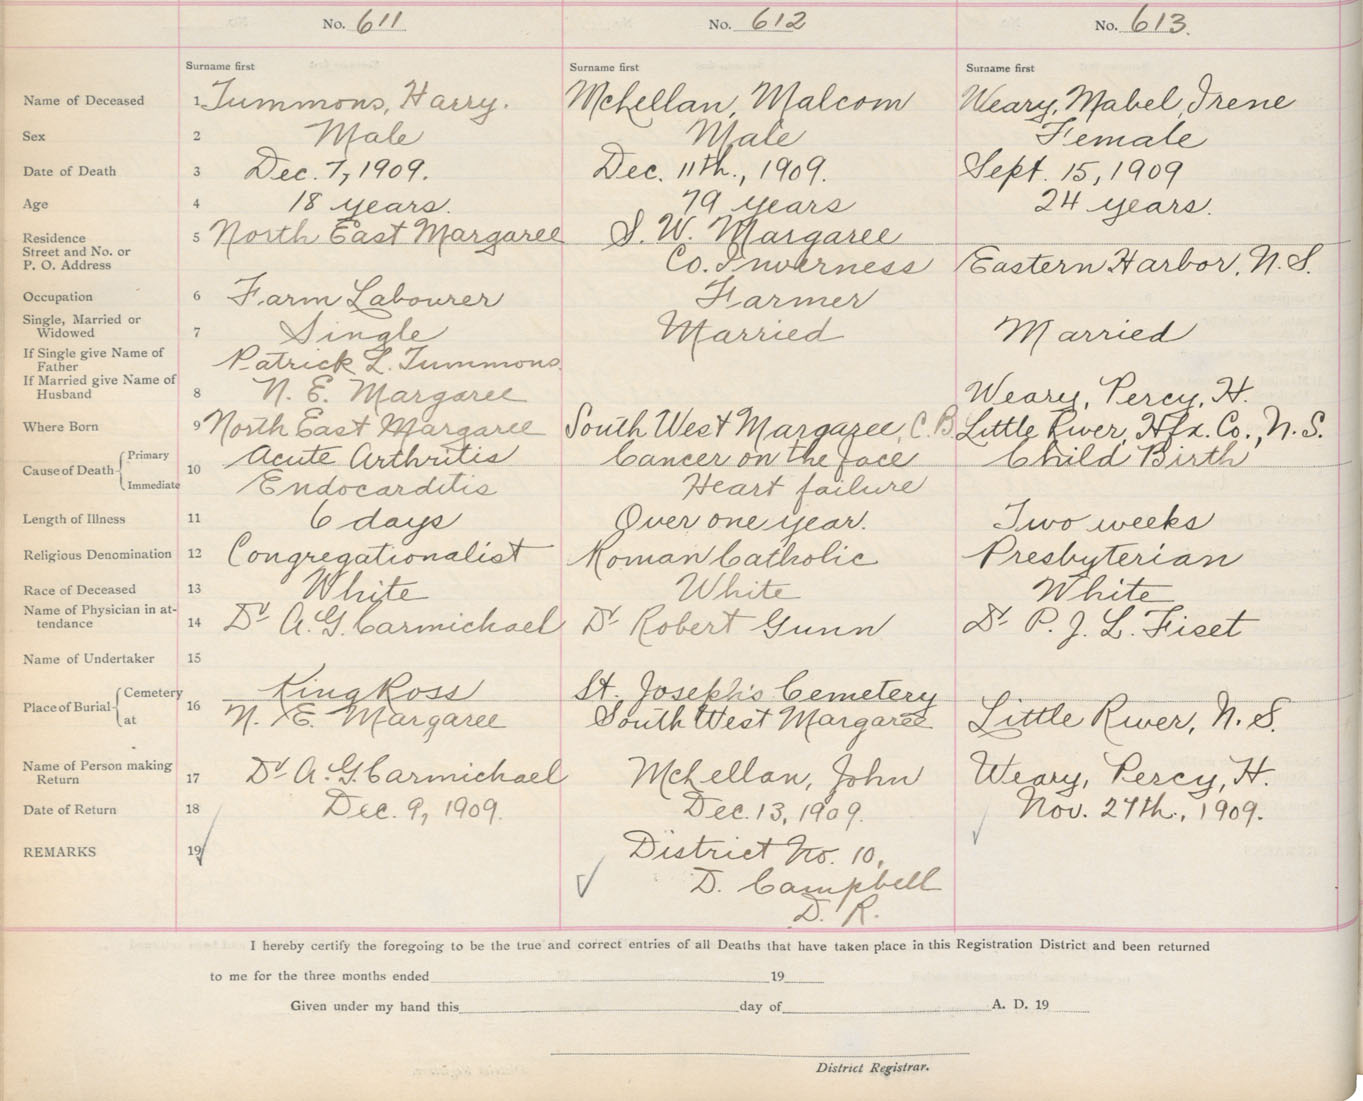 No. 611 No. 612 No. 613.
Surname first Surname first Surname first
Name of Deceased 1 Tummons, Harry. McLellan, Malcom Weary, Mabel, Irene
Sex 2 Male Male Female
Date of Death 3 Dec. 7, 1909. Dec. 11th., 1909. Sept. 15, 1909
Age 4 18 years. 79 years 24 years.
Residence 5 North East Margaree S. W. Margaree
Street and No. or
P. O. Address Co. Inverness Eastern Harbor, N. S.
Occupation 6 Farm Labourer Farmer
Single, Married or
Widowed 7 Single Married Married
If Single give Name of
Father Patrick L. Tummons.
If Married give Name of
Husband 8 N. E. Margaree Weary, Percy, H.
Where Born 9 North East Margaree South West Margaree, C. B. Little River, Hfx. Co., N. S.
Cause of Death Primary 10 Acute Arthritis Cancer on the face Child Birth
Immediate Endocarditis Heart failure
Length of Illness 11 6 days Over one year. Two weeks
Religious Denomination 12 Congregationalist Roman Catholic Presbyterian
Race of Deceased 13 White White White
Name of Physician in at-
tendance 14 Dr A. G. Carmichael Dr Robert Gunn Dr P. J. L. Fiset
Name of Undertaker 15
Place of Burial Cemetery 16 King Ross St. Joseph's Cemetery
at N. E. Margaree South West Margaree Little River, N. S.
Name of Person making
Return 17 Dr A. G. Carmichael McLellan, John Weary, Percy, H.
Date of Return 18 Dec. 9, 1909. Dec. 13, 1909. Nov. 27th., 1909.
REMARKS 19 District No. 10,
D. Campbell
D. R.
I hereby certify the foregoing to be the true and correct entries of all Deaths that have taken place in this Registration District and been returned
to me for the three months ended 19
Given under my hand this day of A. D. 19
District Registrar.